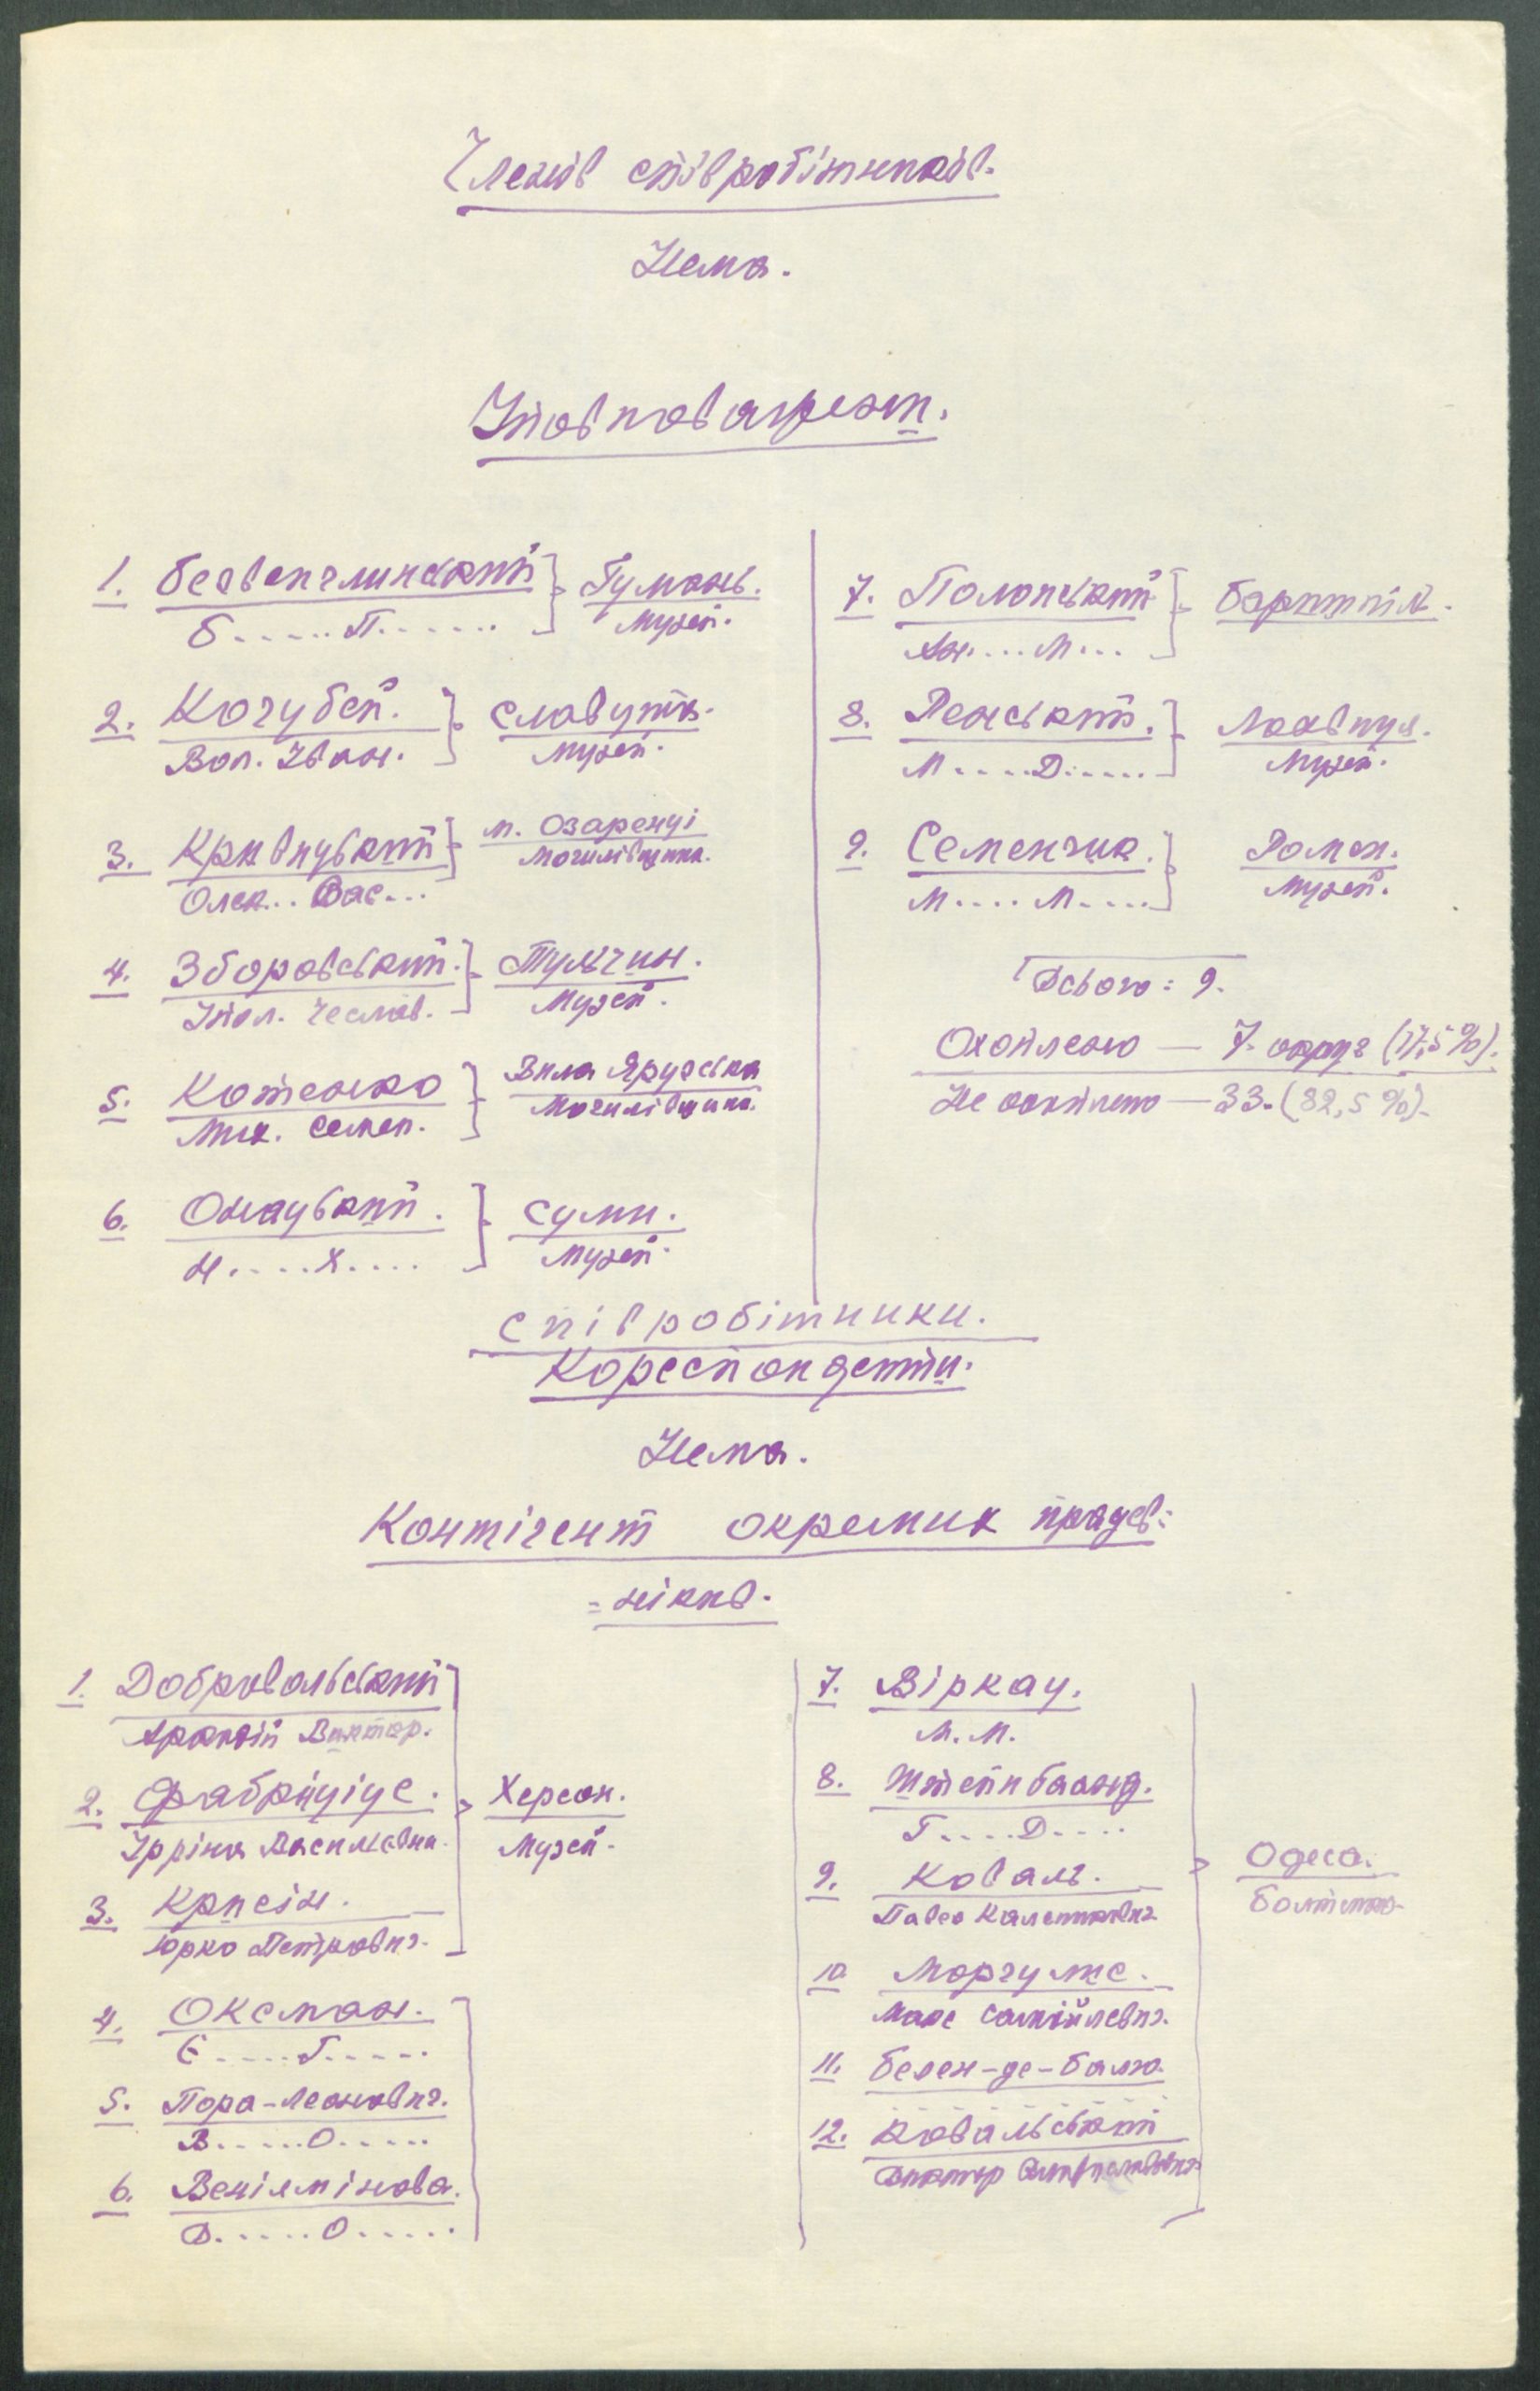 Членів співробітників.
Нема.
Уповноважені.
1. Безвенглинський
Б......П......
Гумань.
Музей.
2. Кочубей.
Вол. Іван.
Славута.
Музей.
3. Кривицький
Олек.. Вас...
м. Озаренці
Могилівщина.
4. Зборовський.
Іпол. Чеслав.
Тульчин.
Музей.
5. Котенко
Мик. Семен.
Вила Ярузська
Могилівщина.
6. Онацький.
Н.....Х....
Суми.
Музей.
7. Полонський
Ан....М...
8. Ренський.
М.....Д......
Лохвиця.
Музей.
9. Семенчик.
М.....М.....
Ромен.
Музей.
Всього: 9.
Охоплено — 7 округ (17,5%).
Не охоплено — 33. (82,5%).
Співробітники.
Кореспонденти.
Нема.
Контігент окремих працев-
=ників.
1. Добровольський
Аркадій Виктор.
2. Фабріціус.
Ірріна Васильевна.
3. Крисін.
Юрко Петрович.
Херсон.
Музей.
4. Оксман.
Є.....Г.....
5. Пора-Леонович.
В......О.....
6. Веніямінова.
О......О......
7. Віркау.
М. М.
8. Штейнбанд.
Г.....Д....
9. Коваль.
Павло
10 Моргулис.
Макс Самійлевич.
11. Белен-де-Балю.
12. Ковальський
Виктор
Одеса.